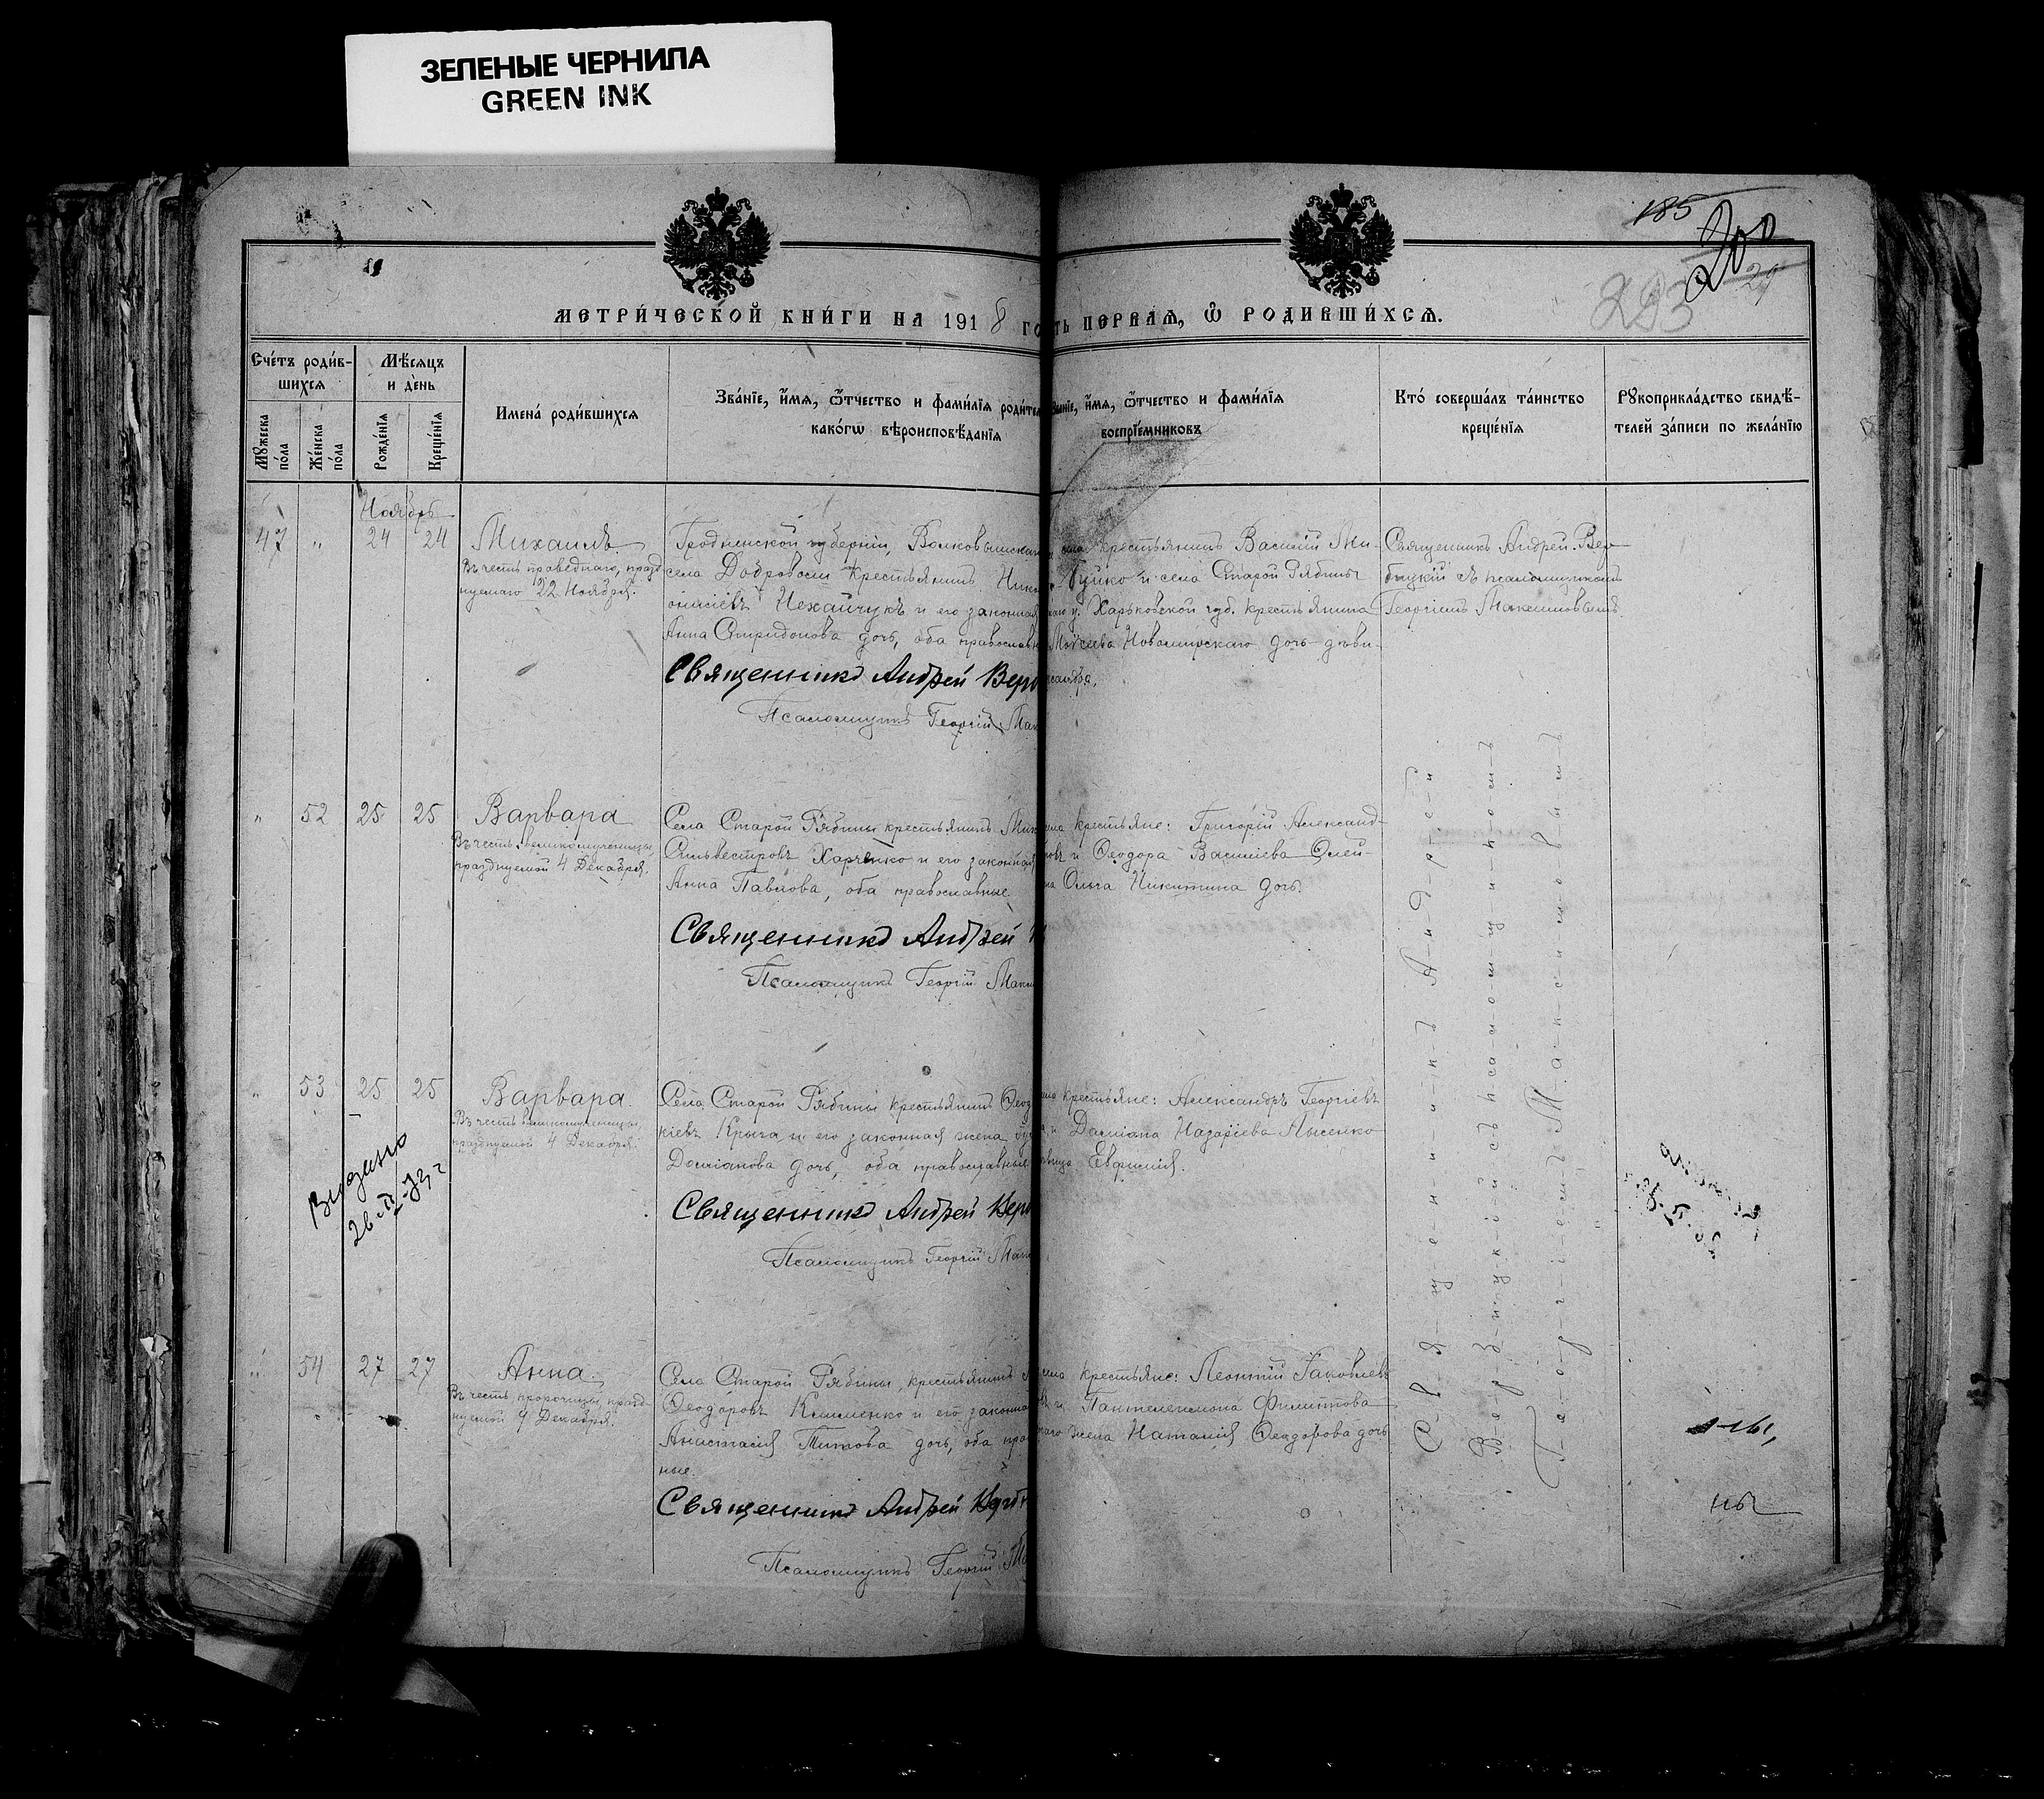 ЗЕЛЕНЫЕ ЧЕРНИЛА
GREEN INK
185
200
29
293
МЕТРИ́ЧЕСКОЙ КНИ́ГИ НА 1918 ГО
ТЬ ПЕРВАѦ, Ѽ РОДИВШИ́ХСѦ.
Сче́тъ роди́в-
шихсѧ
Мꙋжеска по́ла
Же́нска по́ла
Мѣ́сѧцъ
и де́нь
Рожде́нїѧ
Креще́нїѧ
Имена́ роди́вшихсѧ
Зва́нїе, и҆́мѧ, ѻ҆́тчество и фами́лїѧ роди́тел
како́гѡ вѣроисповѣ́данїѧ
Зва́нїе, и҆́мѧ, ѻ҆́тчество и фами́лїѧ
воспрїе́мниковъ
Кто́ соверша́лъ та́инство
креще́нїѧ
Рꙋкоприкла́дство свидѣ́-
телей за́писи по жела́нїю
Ноябрь
47 " 24 24 Михаилъ.
Въ честь праведнаго, празд-
нуемаго 22 Ноября.
Гродненской губерніи, Волковыскаг
села Добровоси крестьянинъ Ник
онисіевъ Нехайчукъ и его законная
Анна Спиридонова дочь, оба православн
Священникъ Андрей Верб
Псаломщикъ Георгій Мак
села крестьянинъ Василій Ми-
Буйко и села Старой Рябины
у. Харьковской губ. крестьянина
Моѵсеева Новомирскаго дочь дѣви-
ксандра.
Священникъ Андрей Вер-
бицкій съ псаломщикомъ
Георгіемъ Максимовымъ
" 52 25 25 Варвара
Въ честь великомученицы,
празднуемой 4 Декабря.
Села Старой Рябины крестьянинъ Мих
Сильвестровъ Харченко и его законная
Анна Павлова, оба православные.
Священникъ Андрей В
Псаломщикъ Георгій Макси
села крестьяне: Григорій Александ-
ровъ и Ѳеодора Василіева Олей-
на Ольга Никитина дочь.
" 53 25 25 Варвара.
Въ честь великомученицы,
празднуемой 4 Декабря.
Села Старой Рябины крестьянинъ Ѳеод
кіевъ Крыга и его законная жена
Доміанова дочь, оба православные
Священникъ Андрей Верб
Псаломщикъ Георгій Мак
села крестьяне: Александръ Георгіевъ
и Даміана Назаріева Лысенко
дѣвица Евфимія.
Видано
" 54 27 27 Анна.
Въ честь пророчицы, празд-
нуемой 9 Декабря.
Села Старой Рябины, крестьянинъ
Ѳеодоровъ Клименко и его законна
Анастасія Титова дочь, оба прав
ные.
Священникъ Андрей Верби
Псаломщикъ Георгій Ма
села крестьяне: Леонтій Іаковлевъ
и Пантелеимона Филиппова
жена Наталія Ѳеодорова дочь
С-в-я-щ-е-н-н-и-к-ъ А-н-д-р-е-й
В-е-р-б-и-ц-к-і-й съ п-са-л-о-м-щ-и-к-о-м-ъ
Г-е-о-р-г-і-е-м-ъ М-а-к-с-и-м-о-в-ы-м-ъ